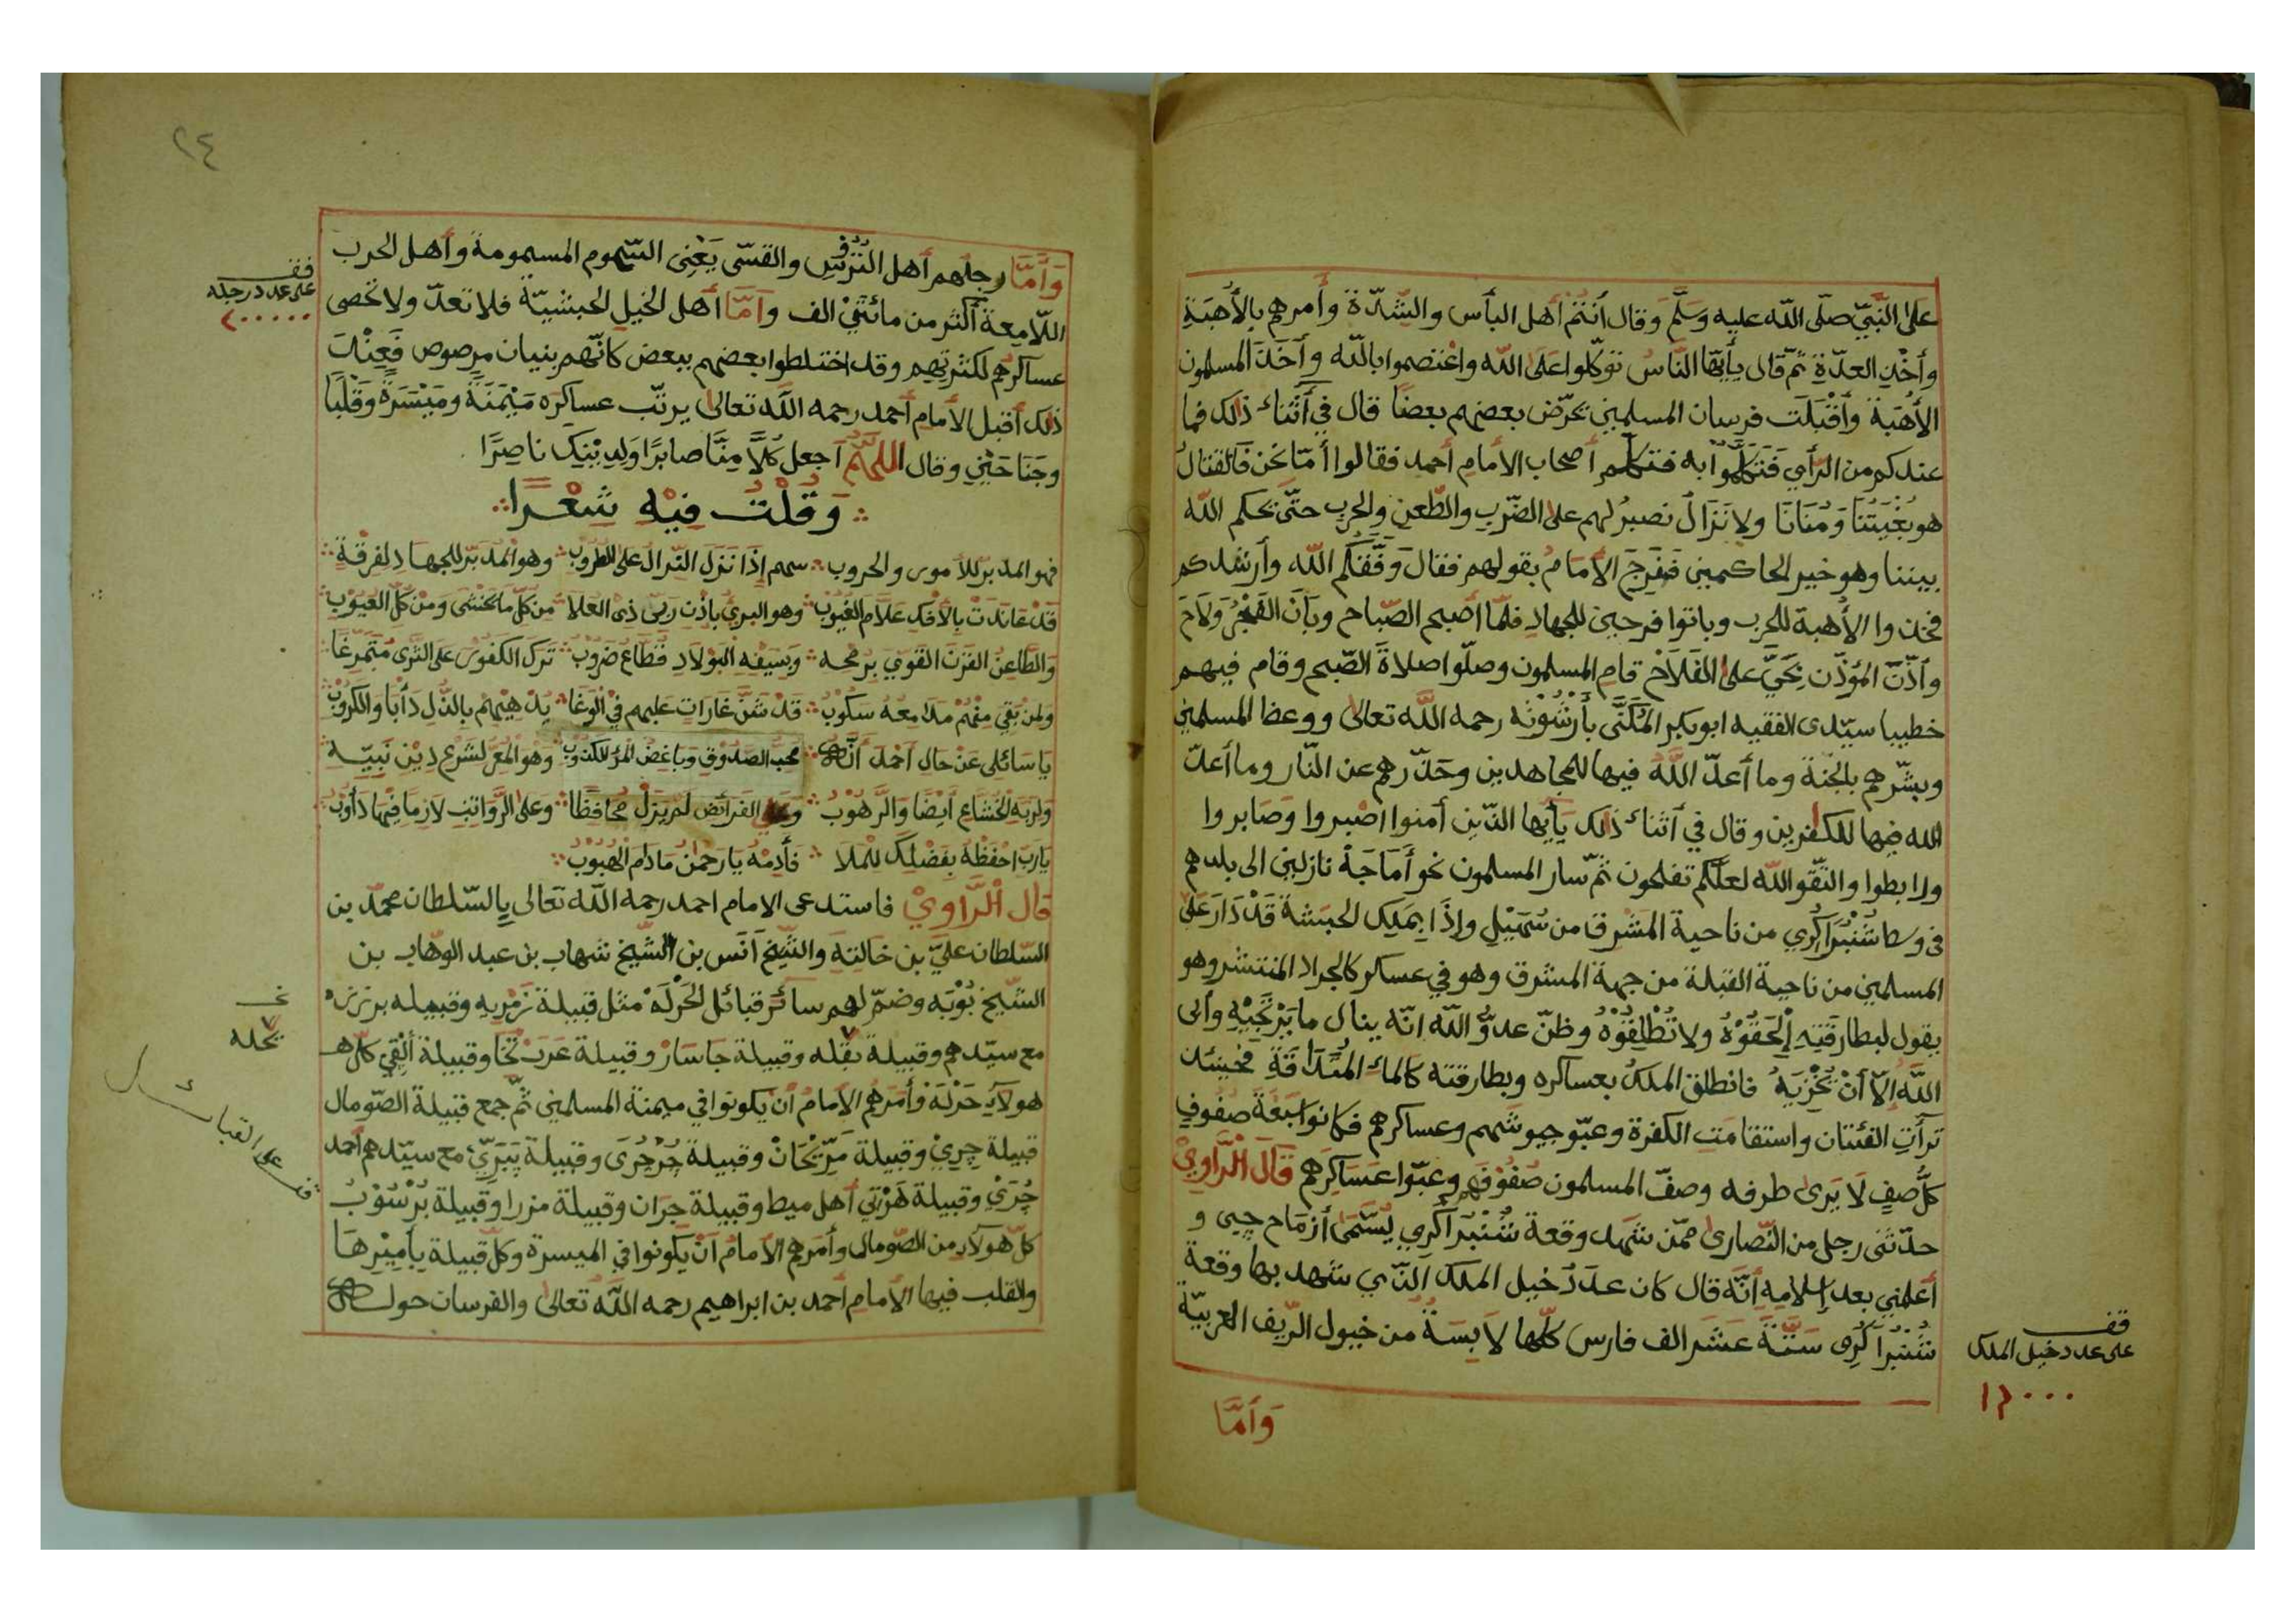 على النّبيّ صلّى الله عليه وسلّم وقال أنتم أهل البأس والشّدّة وأمرهم بالأهبة
وأخذ العدّة ثمّ قال يأيّها النّاس توكّلوا على الله واعتصموا بالله وأخذ المسلمون
الأهبة وأقبلت فرسان المسلمين تحرّض بعضهم بعضًا قال في أثناء ذلك فما
عندكم من الرّأي فتكلّموا به فتكلّم أصحاب الأمام أحمد فقالوا أمّا نحن فالقتال
هو بغيتنا ومنانا ولا نزال نصبر لهم على الضّرب والطّعن والحرب حتّى يحكم الله
بيننا وهو خير الحاكمين ففرح الأمام بقولهم فقال وفّقكم الله وأرشدكم
فخذوا الأهبة للحرب وباتوا فرحين للجهاد فلمّا أصبح الصّباح وبان الفجر ولاح
وأذّن المؤذّن بحيّ على الفلاح قام المسلمون وصلّوا صلاة الصّبح وقام فيهم
خطيبا سيّدى الفقيه ابوبكر المكنّى بأرشونه رحمه الله تعالى ووعظ المسلمين
وبشّرهم بالجنة وما أعدّ الله فيها للمجاهدين وحذّرهم عن النّار وما أعدّ
الله فيها للكفرين وقال في أثناء ذلك يأيّها الذّين أمنوا اصبروا وصابروا
ورابطوا والتّقوالله لعلّكم تفلحون ثمّ سار المسلمون نحو أماجة نازلين الى بلدهم
في وسط شنبرا كري من ناحية المشرق من سميل وإذا بملك الحبشة قد دار على
المسلمين من ناحية القبلة من جهة المشرق وهو في عساكر كالجراد المنتشر وهو
يقول لبطارقته إلحقوه ولا تطلقوه وظنّ عدوّ الله انّه ينال ما يرتجيه وأبى
اللهُ إلّا أن يخزيه فانطلق الملك بعساكره وبطارقته كالماء المتدافقة فحينئذ
ترأت الفئتان واستقامت الكفرة وعبّو جيوشهم وعساكرهم فكانوا سبعة صفوف
كلّ صف لا يرى طرفه وصفّ المسلمون صفوفهم وعبّوا عساكرهم قال الرّاوي
حدّثنى رجل من النّصارى ممّن شهد وقعة شنبرا كري يسمّى أزماح جبى و
أعلمني بعد إسلامه أنّه قال كان عدد خيل الملك الذّي شهد بها وقعة
شنبرا كرى ستّة عشر الف فارس كلّها لابسة من خيول الرّيف العربيّة
وأمّا
قف
على عدد خيل الملك
١٦٠٠٠
٢٤
وأمّا رجلهم أهل التّرس والقسّى يعنى السّهوم المسمومة وأهل الحرب
اللّامعة أكثر من مائتيْ الف وأمّا أهل الخيل الحبشيّة فلا تعدّ ولا تحصى
عساكرهم لكثرتهم وقد اختلطوا بعضهم ببعض كانّهم بنيان مرصوص فعند
ذلك أقبل الأمام أحمد رحمه الله تعالى يرتّب عساكره ميمنة وميسرة وقلبا
وجناحين وقال اللّهمّ اجعل كلًّا منّا صابرًا ولدينك ناصرًا
وقلت فيه شعرا
فهو المدبّر للأمور والحروب سهم إذا نزل النّزال وهو المدبّر للجهاد لفرقة
قد عاندت بالأفك علّام الغيوب وهو البرئ باذن ربّى ذى العلا من كلّ ما يخشى ومن كلّ العيوب
والطّاعن القرن القويّ برمحه وبسيفه البولاد قطّاع ضروب ترك الكفور على الثّرى متمرّغا
ولمن بقى منهم مدامعه سكوب قد شنّ غارات عليهم في الوغا يدهيهم بالذّل دأبا والكروب
يا سائلى عن حال احمد انّه محب الصدوق وباغض المرء الكذوب وهو المعزّ لشرع دين نبيّه
ولربّه الخشّاع ايضا والرّهوب وعلى الفرائض لم يزل محافظا وعلى الرّواتب لازما فيها دأوب
يارب احفظه بفضلك للملا فأدمه يا رحمن مادام الهبوب
قال الرّاويّ فاستدعى الامام احمد رحمه الله تعالى بالسّلطان محمّد بن
السّلطان عليّ بن خالته والشّيخ أنس بن الشّيخ شهاب بن عبد الوهّاب بن
الشّيخ بوبه وضمّ لهم سائر قبائل الحرلة مثل قبيلة زمربه وقبيله برزره
مع سيّدهم وقبيلة بقله وقبيلة جاسار وقبيلة عرب تخا وقبيلة ألقي كلّ هـ
هولآء حرلة وأمرهم الأمام أن يكونوا في ميمنة المسلمين ثمّ جمع قبيلة الصّومال
قبيلة جري وقبيلة مرّيحان وقبيلة جرجرى وقبيلة يبرّي مع سيّدهم أحمد
جرى وقبيلة هرتي أهل ميط وقبيلة جران وقبيلة مزرا وقبيلة برسوب
كلّ هولآء من الصّومال وأمرهم الأمام أن يكونوا في الميسرة وكلّ قبيلة بأميرها
والقلب فيها الأمام أحمد بن ابراهيم رحمه الله تعالى والفرسان حوله
قف
على عدد رجله
٢٠٠٠٠٠
يحله
قف على القبائل